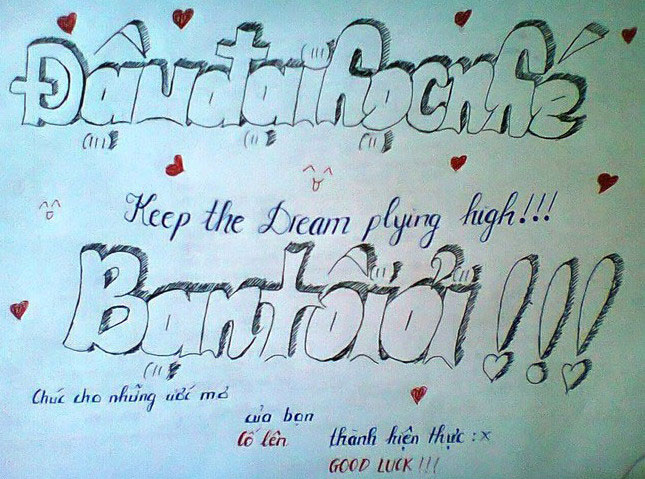 Đâụ đại học nhé
Keep the Dream plying high!!!
Bạn tôi ơi !!!
Chúc cho những ước mơ
của bạn
thành hiện thực :x
Cố lên
GOOD LUCK !!!